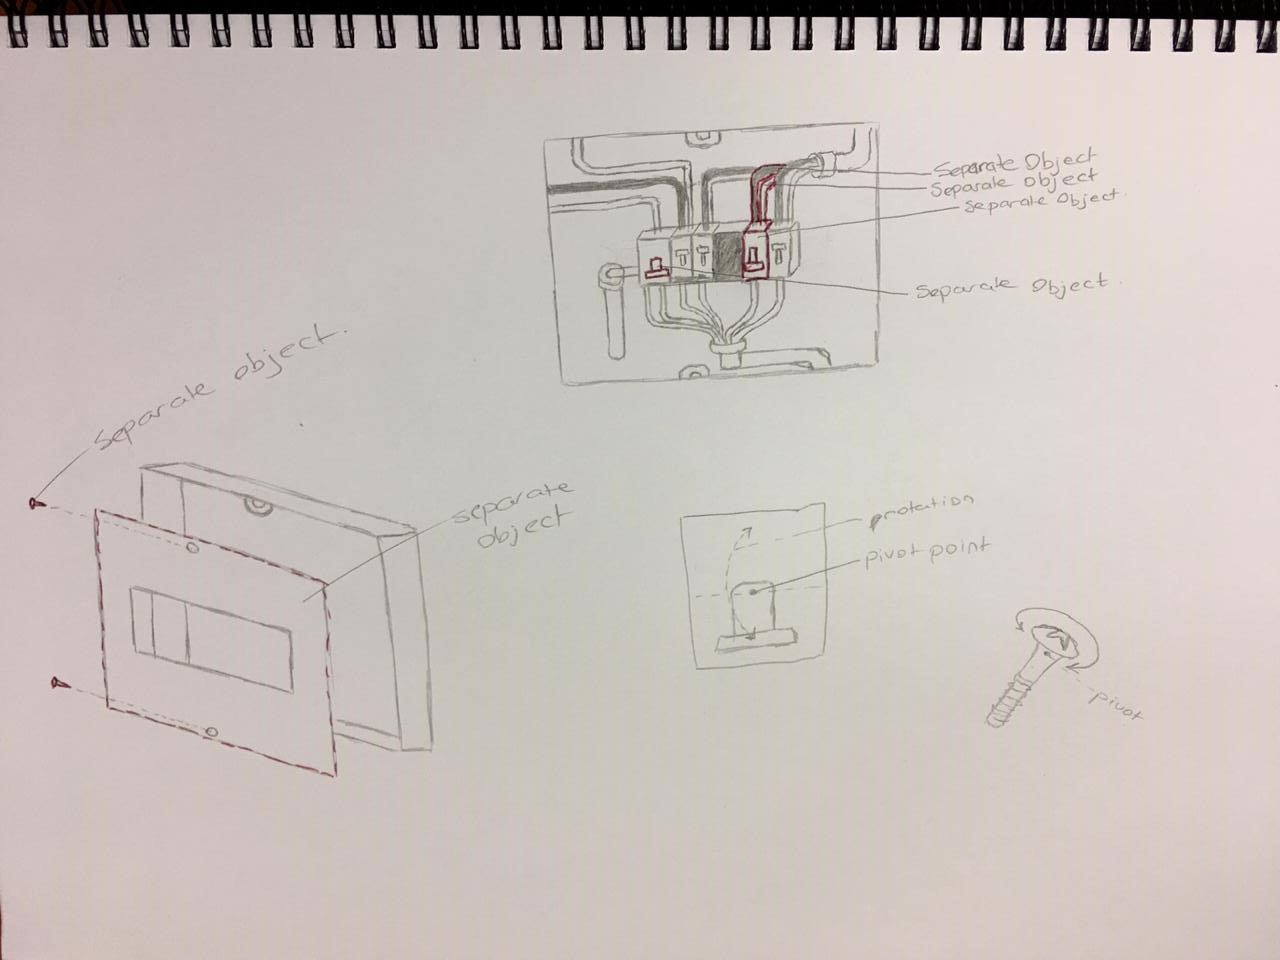 Separate Object
Separate object
separate Object.
Separate Object.
Separate object.
separate
object
protation
pivot point
pivot